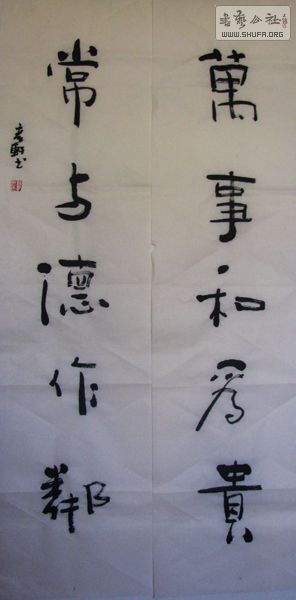 萬事和爲貴
常与德作鄰
書藝公社
WWW.SHUFA.ORG